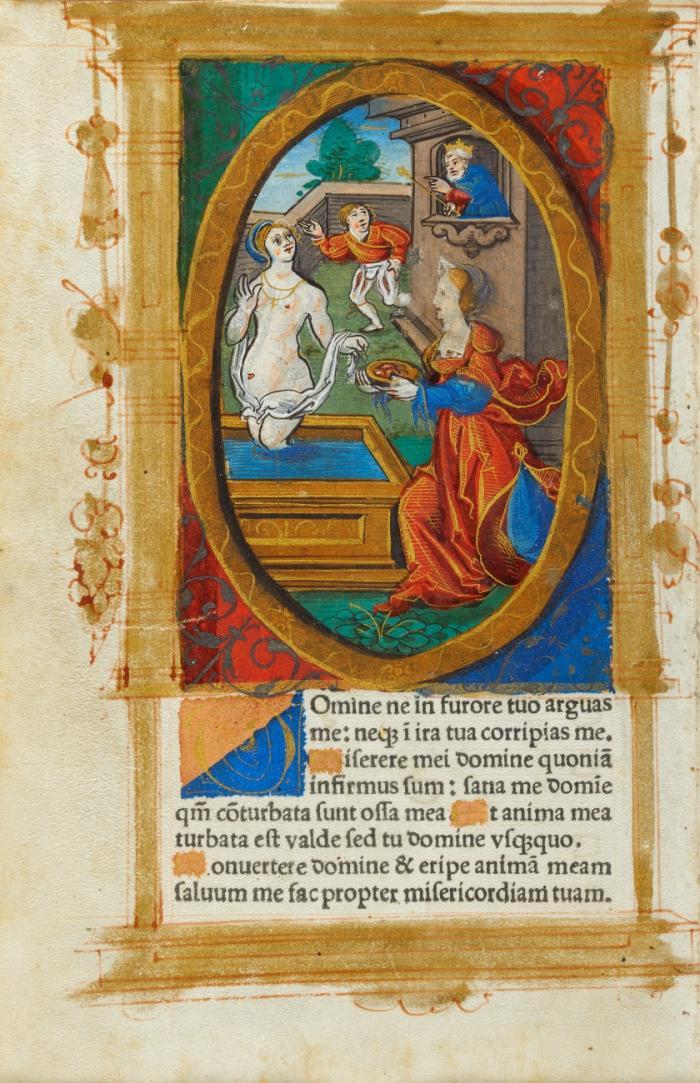 Omine ne in furore tuo arguas
me: neqꝫ ĩ ira tua corripias me.
iserere mei domine quoniã
infirmus sum: sana me domĩe
qm̃ cõturbata sunt ossa mea t anima mea
turbata est valde sed tu domine vsqꝫquo.
onuertere domine & eripe animã meam
saluum me fac propter misericordiam tuam.